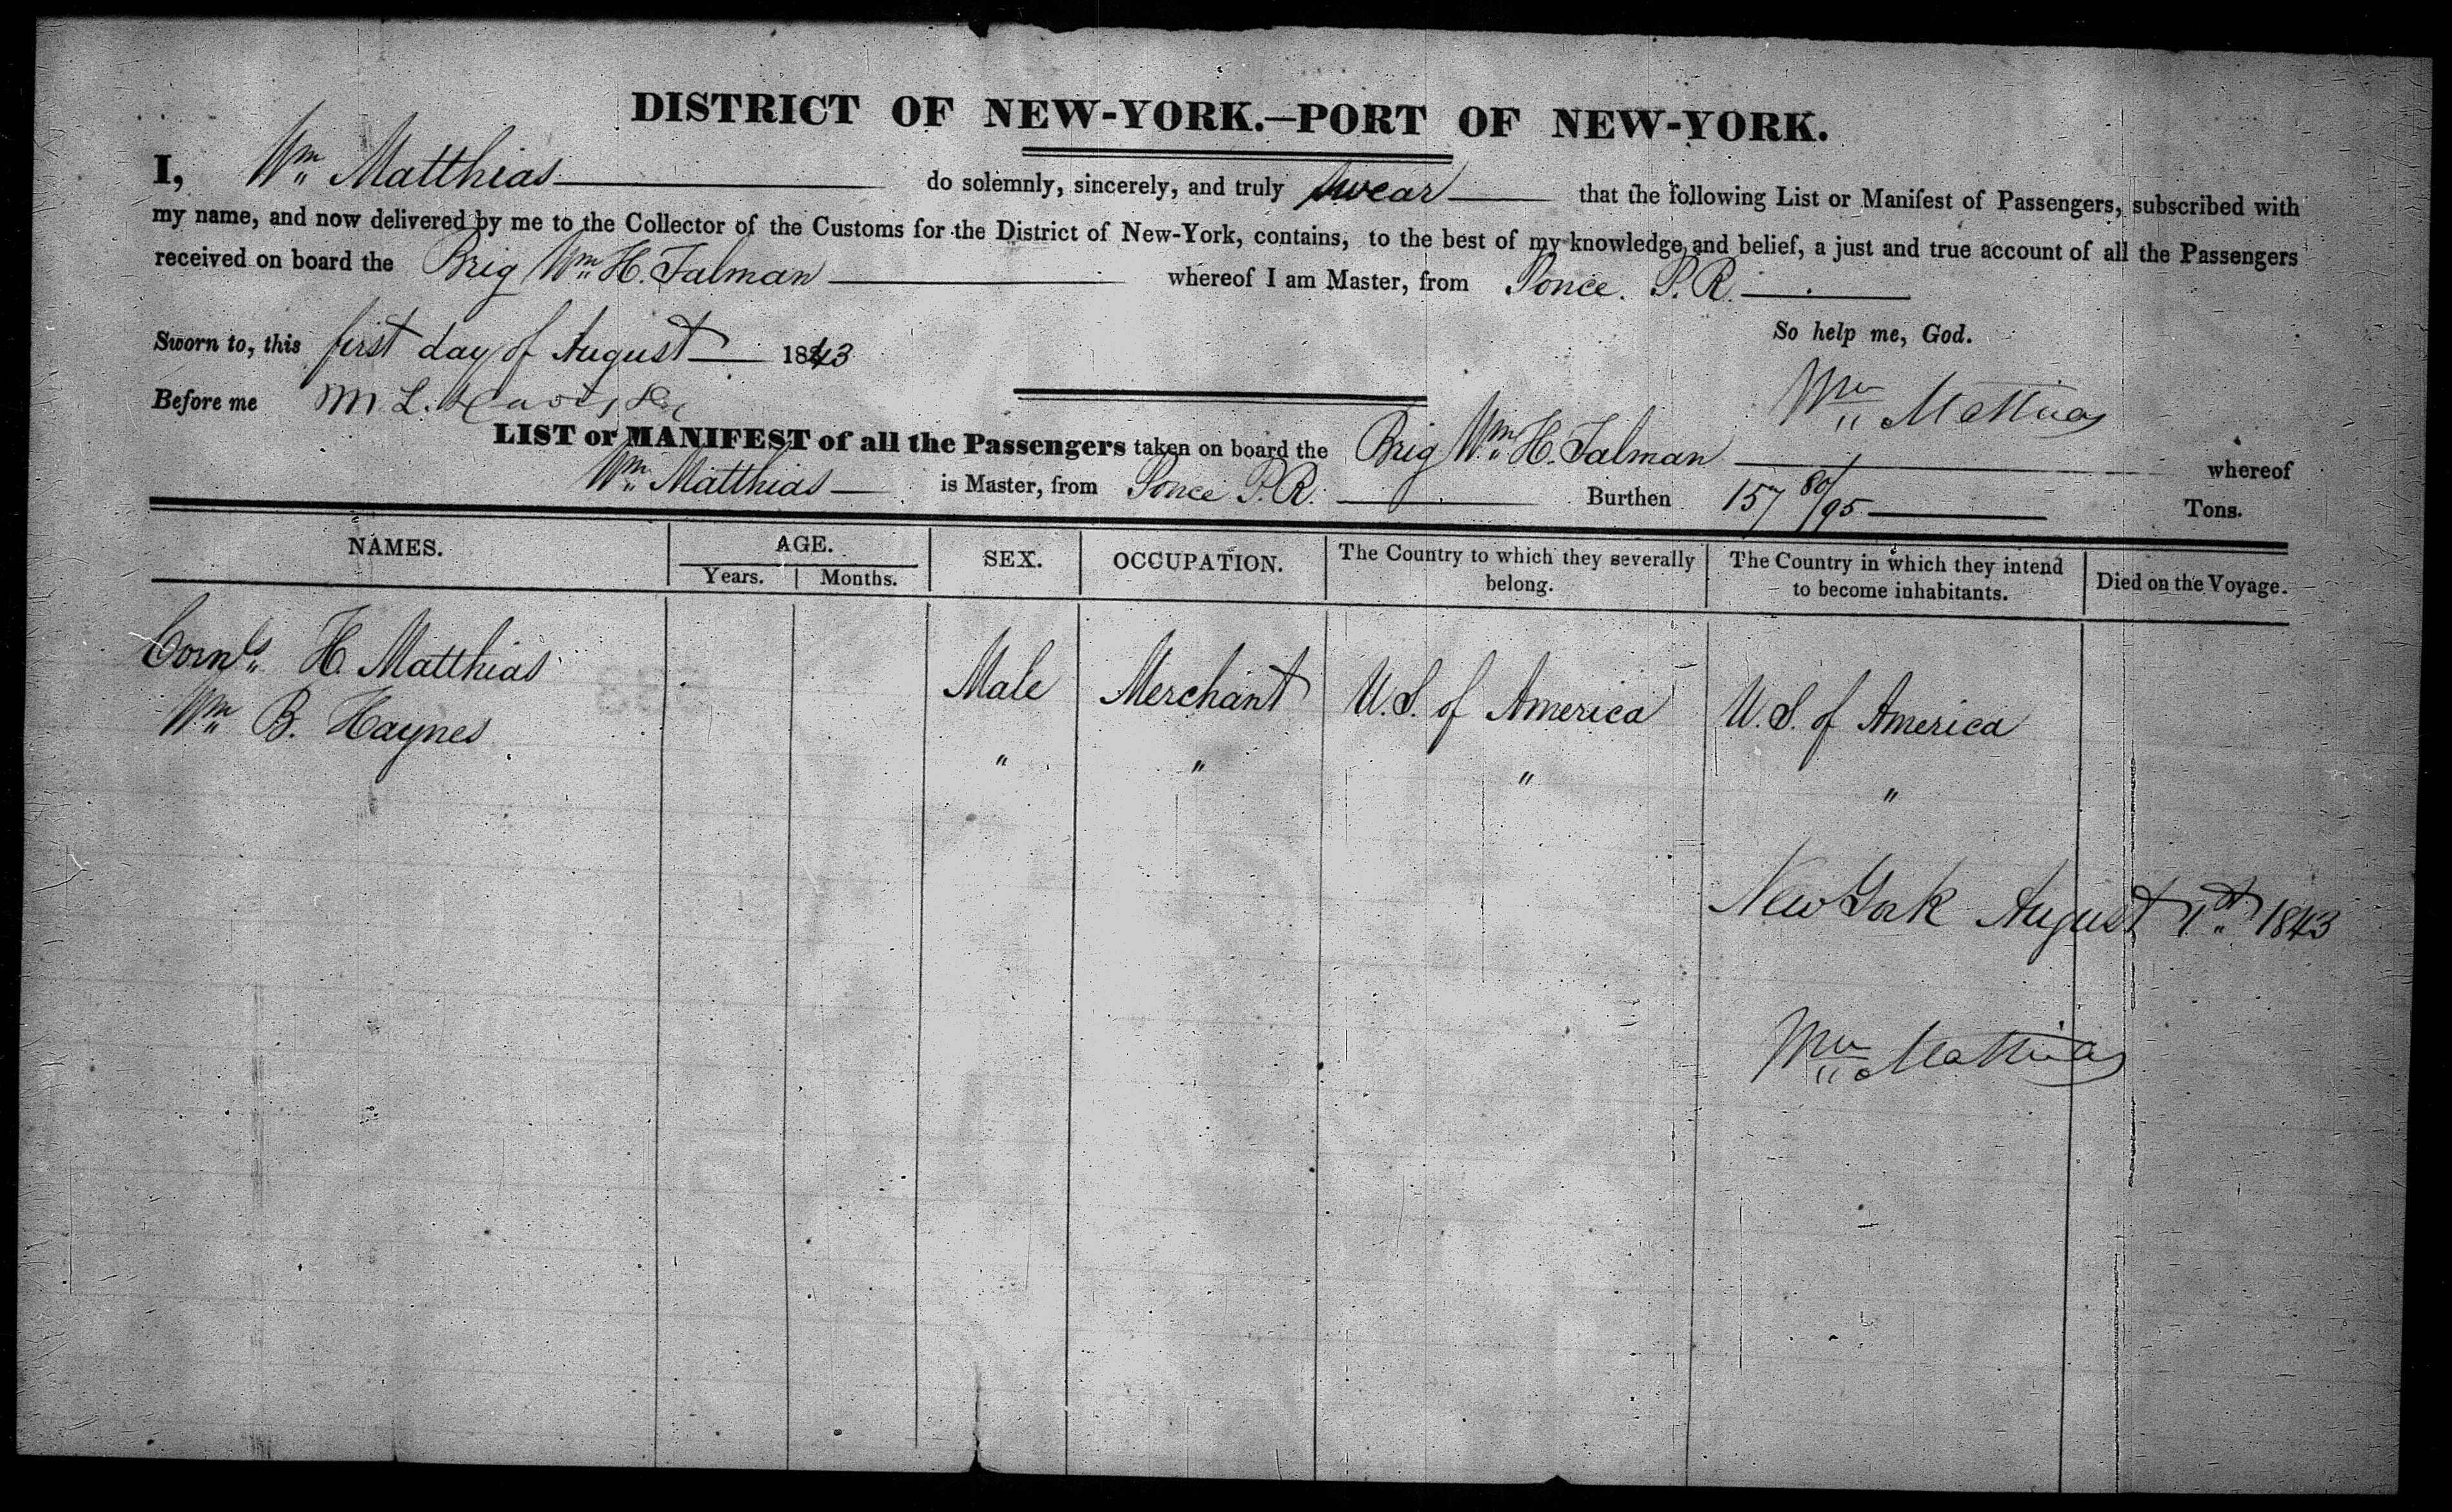 DISTRICT OF NEW-YORK.—PORT OF NEW-YORK.
I, Wm Matthias do solemnly, sincerely, and truly swear that the following List or Manifest of Passengers, subscribed with
my name, and now delivered by me to the Collector of the Customs for the District of New-York, contains, to the best of my knowledge and belief, a just and true account of all the Passengers
received on board the Brig Wm H. Talman whereof I am Master, from Ponce. P.R.
Sworn to, this first day of August 1843
So help me, God.
Before me M. L.
Wm Matthias
LIST or MANIFEST of all the Passengers taken on board the Brig Wm H. Talman whereof
Wm Matthias is Master, from Ponce P.R. Burthen 157 80/95 Tons.
NAMES. AGE. SEX. OCCUPATION. The Country to which they severally belong. The Country in which they intend to become inhabitants. Died on the Voyage.
Years. Months.
Cornls H. Matthias Male Merchant U.S. of America U.S. of America
Wm B. Haynes " " " "
New York August 1st 1843
Wm Matthias